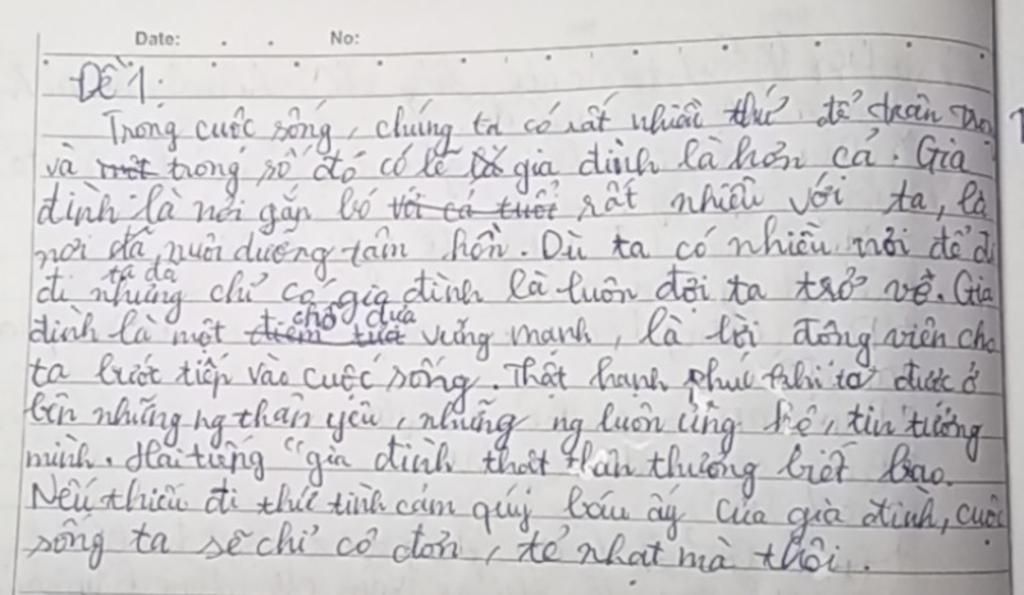 Date: No:
Đề 1:
Trong cuộc sống, chúng ta có rất nhiều thứ để trân trọng
và trong số đó có lẽ gia đình là hơn cả. Gia
đình là nơi gắn bó rất nhiều với ta, là
nơi đã nuôi dưỡng tâm hồn. Dù ta có nhiều nơi để đi
ta đã
đi nhưng chỉ có gia đình là luôn đợi ta trở về. Gia
chỗ dựa
đình là một vững mạnh, là lời động viên cho
ta bước tiếp vào cuộc sống. Thật hạnh phúc khi ta được ở
bên những ng thân yêu, những ng luôn ủng hộ, tin tưởng
mình. Hai tiếng "gia đình thật thân thương biết bao.
Nếu thiếu đi thứ tình cảm quý báu ấy của gia đình, cuộc
sống ta sẽ chỉ cô đơn, tẻ nhạt mà thôi.